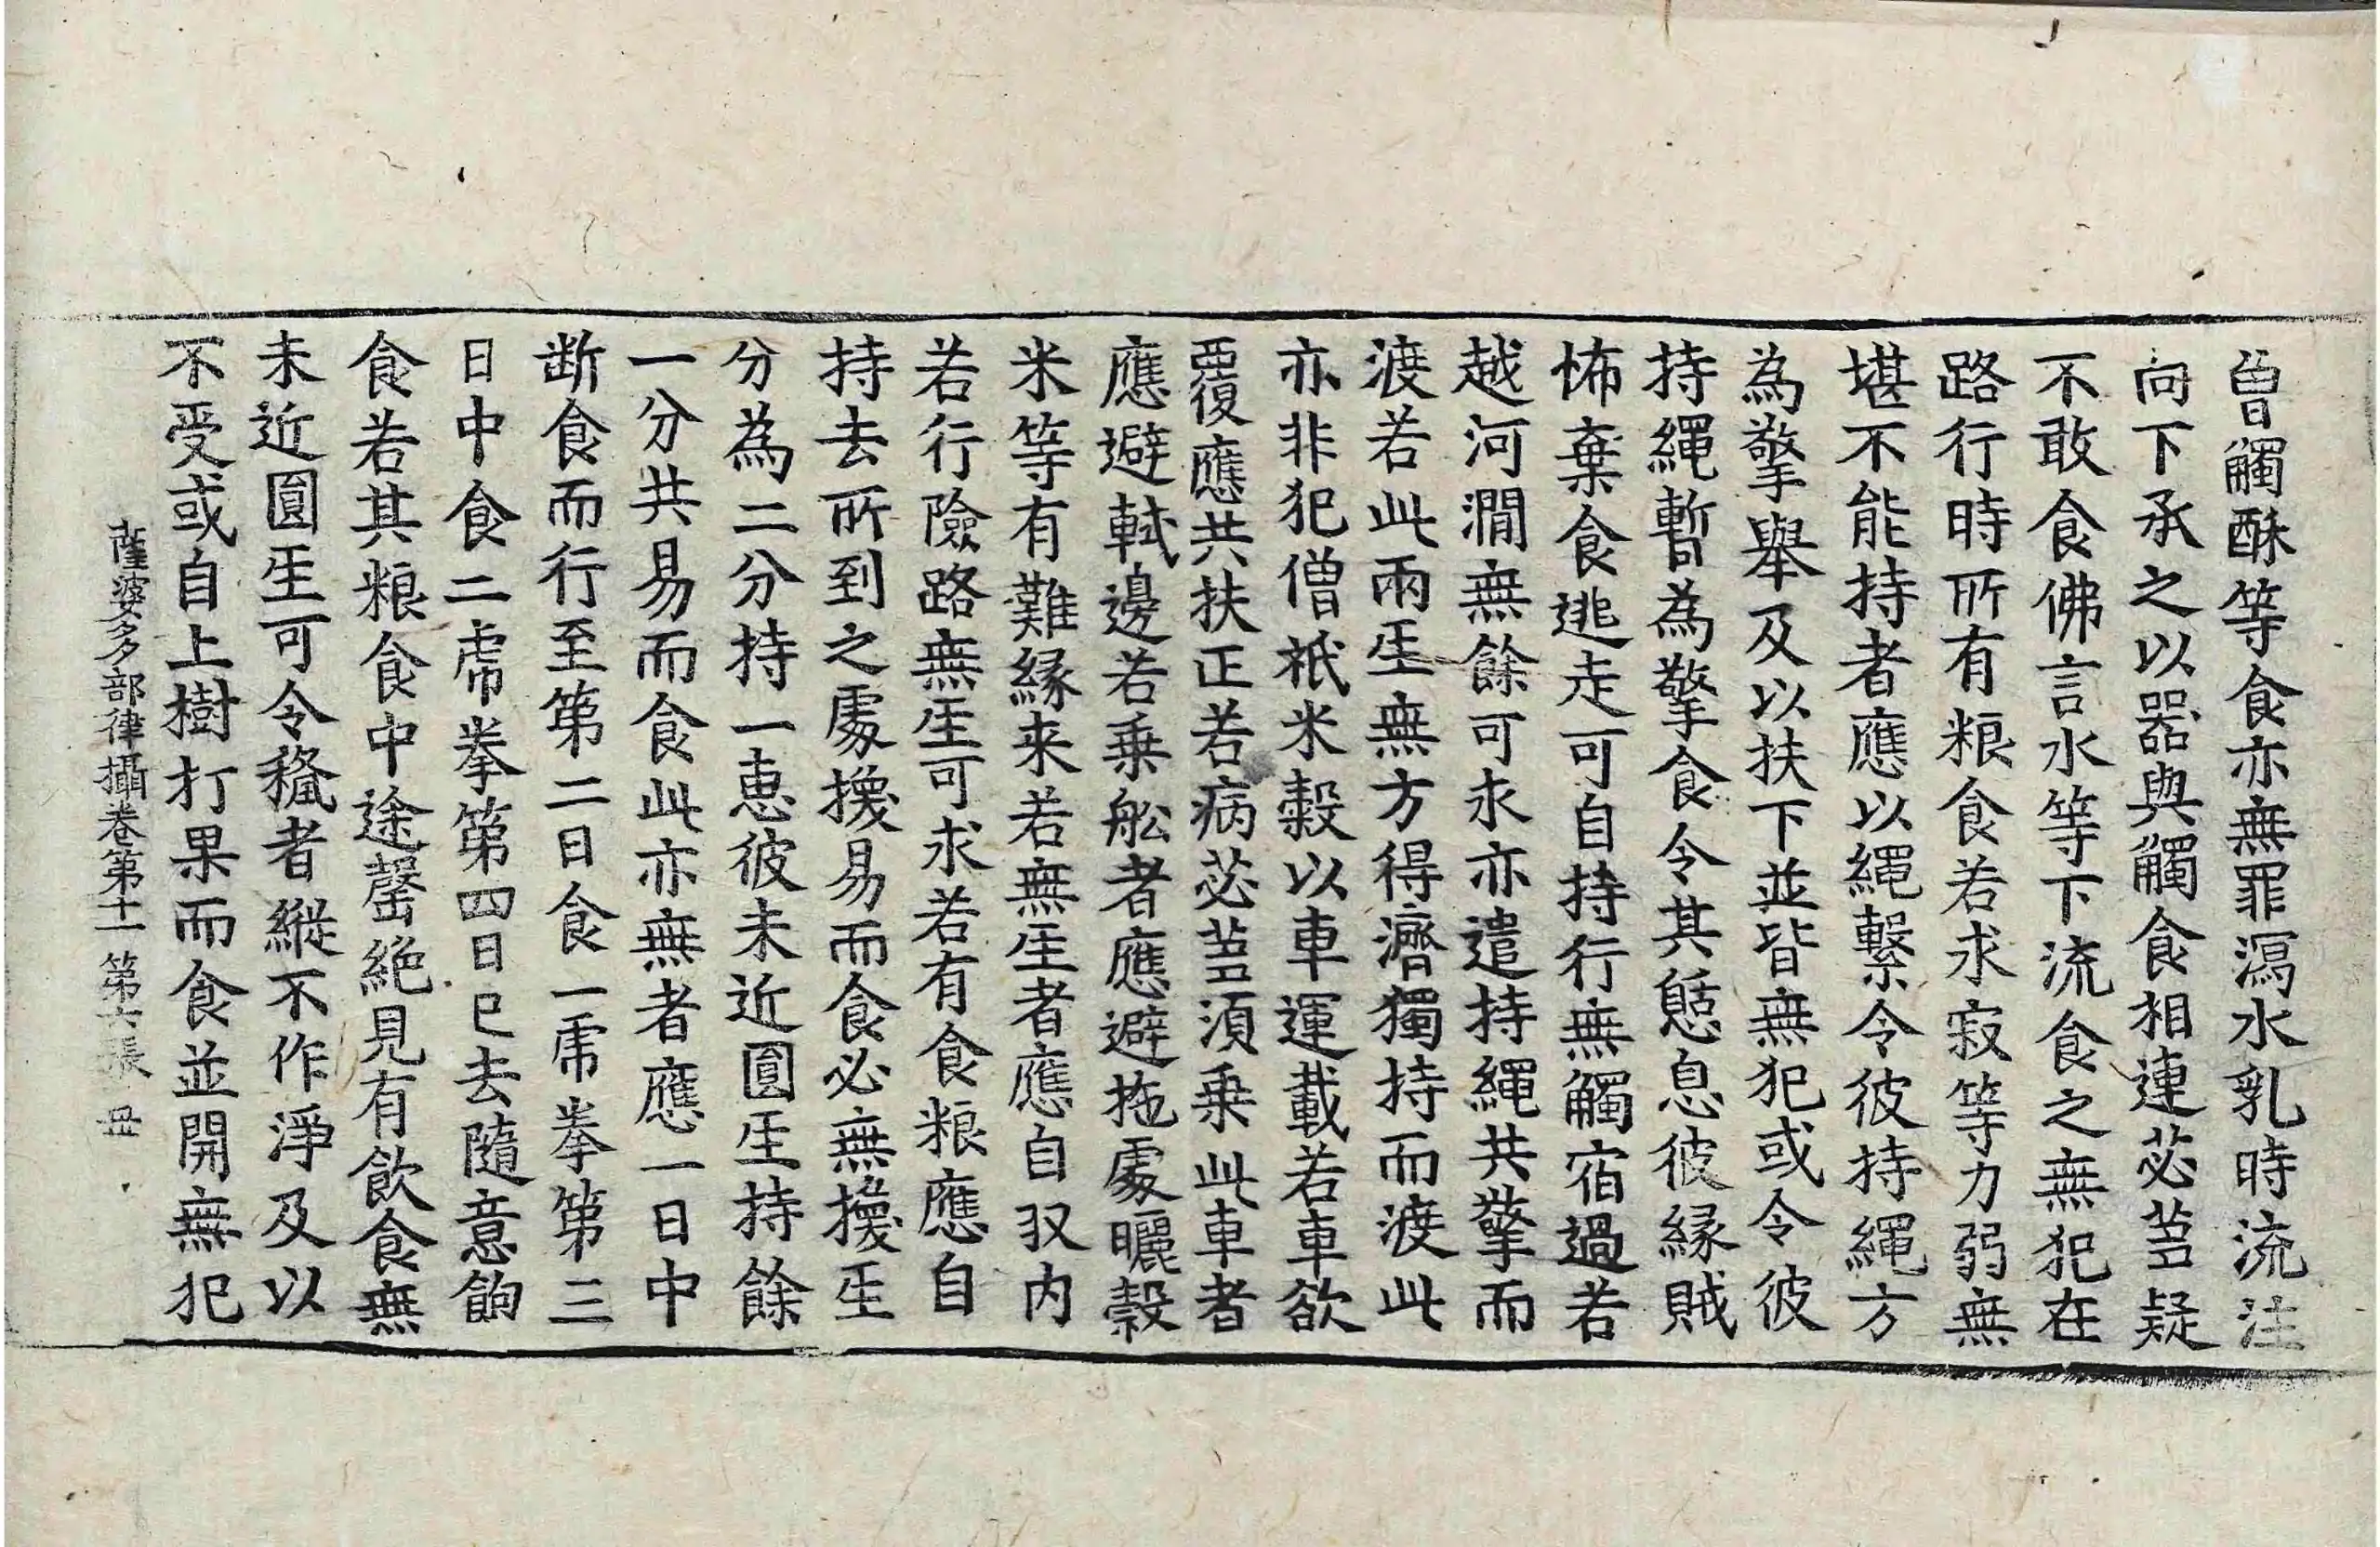 曾觸酥等食亦無罪瀉水乳時流注
向下承之以器與觸食相連苾芻疑
不敢食佛言水等下流食之無犯在
路行時所有粮食若求寂等力弱無
堪不能持者應以繩繫令彼持繩方
為擎舉及以扶下並皆無犯或令彼
持繩暫為擎食令其憩息彼緣賊
怖棄食逃走可自持行無觸宿過若
越河澗無餘可求亦遣持繩共擎而
渡若此兩生無方得濟獨持而渡此
亦非犯僧祇米糓以車運載若車欲
覆應共扶正若病苾芻須乗此車者
應避軾邊若乗舩者應避拖處曬穀
米等有難緣来若無𤯔者應自収内
若行險路無𤯔可求若有食粮應自
持去所到之處換易而食必無換𤯔
分為二分持一惠彼未近圓𤯔持餘
一分共易而食此亦無者應一日中
断食而行至第二日食一虎拳第三
日中食二虎拳第四日已去隨意飽
食若其粮食中途罄絕見有飲食無
未近圓𤯔可令𥞊者縱不作淨及以
不受或自上樹打果而食並開無犯
薩婆多部律攝卷第十一 第六張 毌